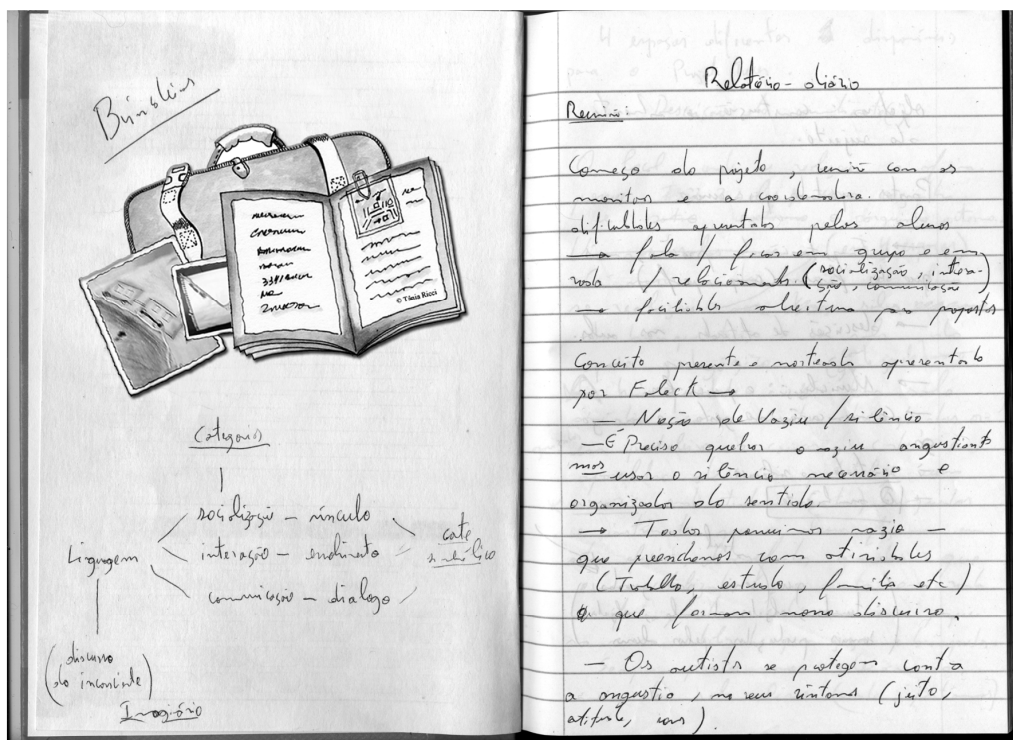 © Tânia Ricci
Categorias
socialização – vínculo
Linguagem interação – cate
comunicação – dialogo
discurso
do inconsciente
Imaginário
Relatório-diário
Reunião:
Começo do projeto, reunião com os
monitores e a coordenadora.
dificuldades apresentadas pelos alunos
→ fala / ficar em grupo e em
roda / relacionamento (socialização, intera-
ção, comunicação)
→ abertura propostas
Conceito presente e norteador apresentado
por →
– Noção de Vazio / silêncio
– É Preciso quebrar o vazio angustiante
mas usar o silêncio necessário e
organizador do sentido
→ Todos possuimos vazio –
que preenchemos com atividades
(Trabalho, estudo, família etc)
que formam nosso discurso.
– Os autistas se protegem contra
a angustia, no seu sintoma (jeito,
atitude,